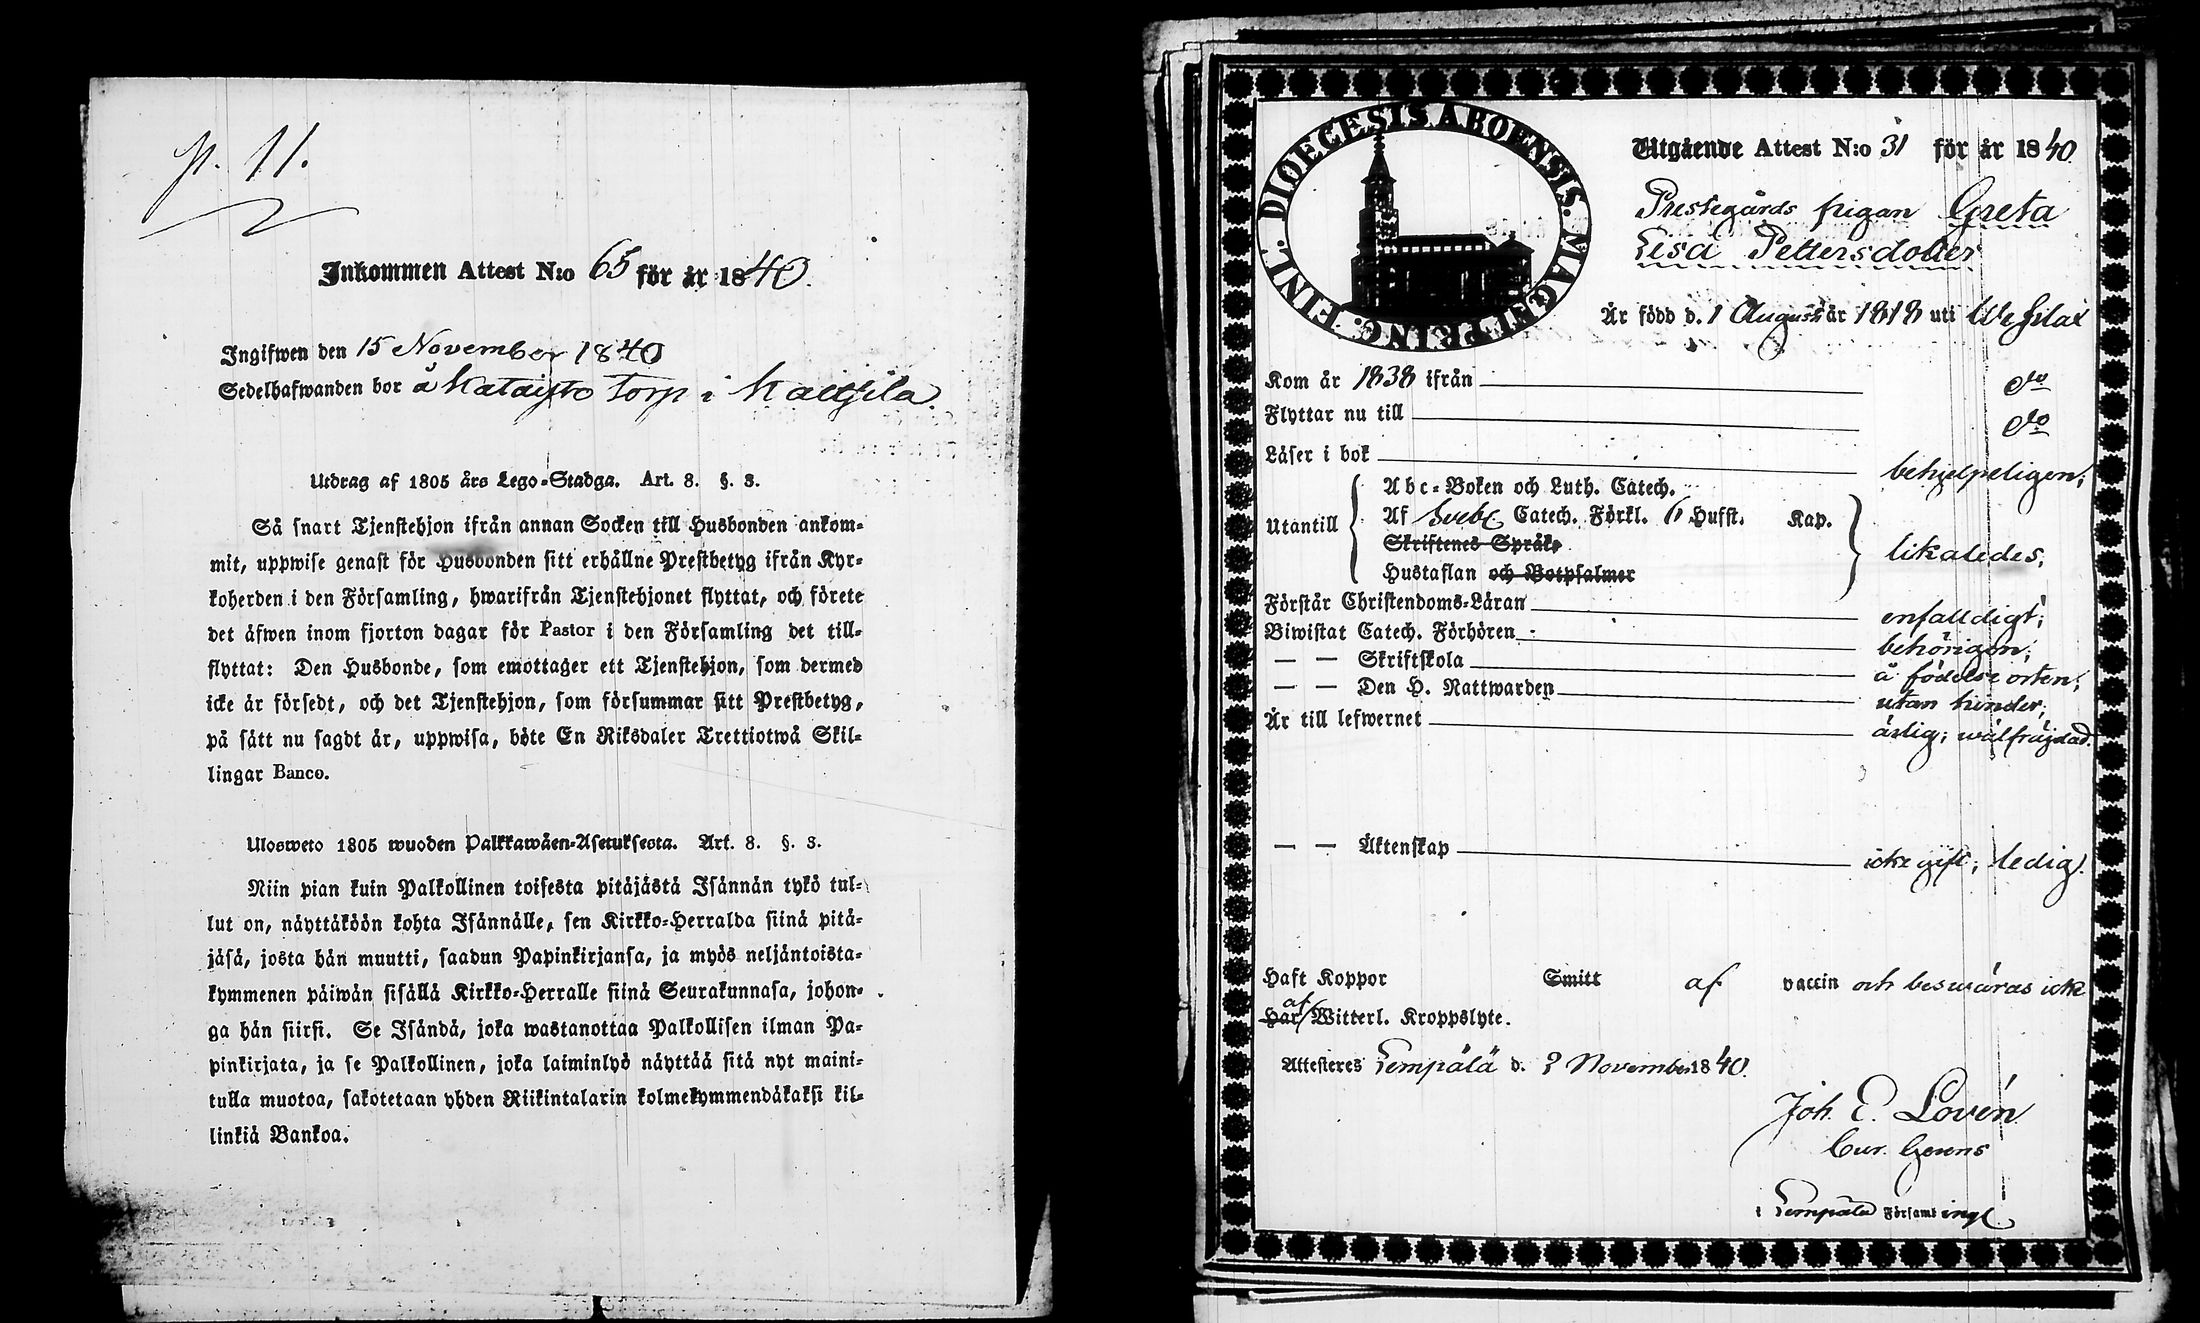 p. 11.
Inkommen Attest N:o 65 för år 1840.
Ingifwen den 15 November 1840
Sedelhafwanden bor å Kataisto torp i
Utdrag af 1805 års Lego-Stadga. Art. 8. §. 3.
Så snart Tjenstehjon ifrån annan Socken till Husbonden ankom-
mit, uppwise genast för Husbonden sitt erhållne Prestbetyg ifrån Kyr-
koherden i den Församling, hwarifrån Tjenstehjonet flyttat, och förete
det äfwen inom fjorton dagar för Pastor i den Församling det till-
flyttat: Den Husbonde, som emottager ett Tjenstehjon, som dermed
icke är försedt, och det Tjenstehjon, som försummar sitt Prestbetyg,
på sätt nu sagdt är, uppwisa, böte En Riksdaler Trettiotwå Skil-
lingar Banco.
Ulosweto 1805 wuoden Palkkawäen-Asetuksesta. Art. 8. §. 3.
Niin pian kuin Palkollinen toisesta pitäjästä Isännän tykö tul-
lut on, näyttäköön kohta Isännälle, sen Kirkko-Herralda siinä pitä-
jäsä, josta hän muutti, saadun Papinkirjansa, ja myös neljäntoista-
kymmenen päiwän sisällä Kirkko-Herralle siinä Seurakunnasa, johon-
ga hän siirsi. Se Isändä, joka wastanottaa Palkollisen ilman Pa-
pinkirjata, ja se Palkollinen, joka laiminlyö näyttää sitä nyt maini-
tulla muotoa, sakotetaan yhden Riikintalarin kolmekymmendäkaksi kil-
linkiä Bankoa.
DIOECESIS ABOENSIS. MAGNI PRINC. FINL.
Utgående Attest N:o 31 för år 1840
Prestegårds pigan Greta
Lisa Pettersdotter
Är född d. 1 Augusti år 1818 uti Wesilax
Kom år 1838 ifrån do
Flyttar nu till do
Läser i bok behjelpeligen;
Abc-Boken och Luth. Catech.
Utantill Af Sveb. Catech. Förkl. 6 Hufst. Kap. likaledes;
Skriftenes Språk
Hustaflan och Botpsalmer
Förstår Christendoms-Läran enfalldigt;
Biwistat Catech. Förhören behörigen;
— — Skriftskola å födelse orten;
— — Den H. Nattwarden utan hinder;
Är till lefwernet ärlig; wälfräjdad.
— — Äktenskap icke gift; ledig.
Haft Koppor Smitt af vaccin och beswäras icke
Har af Witterl. Kroppslyte.
Attesteres Lempälä d. 2 November 1840.
Joh. E. Lovén
Cur. Gerens
i Lempälä Församlingl